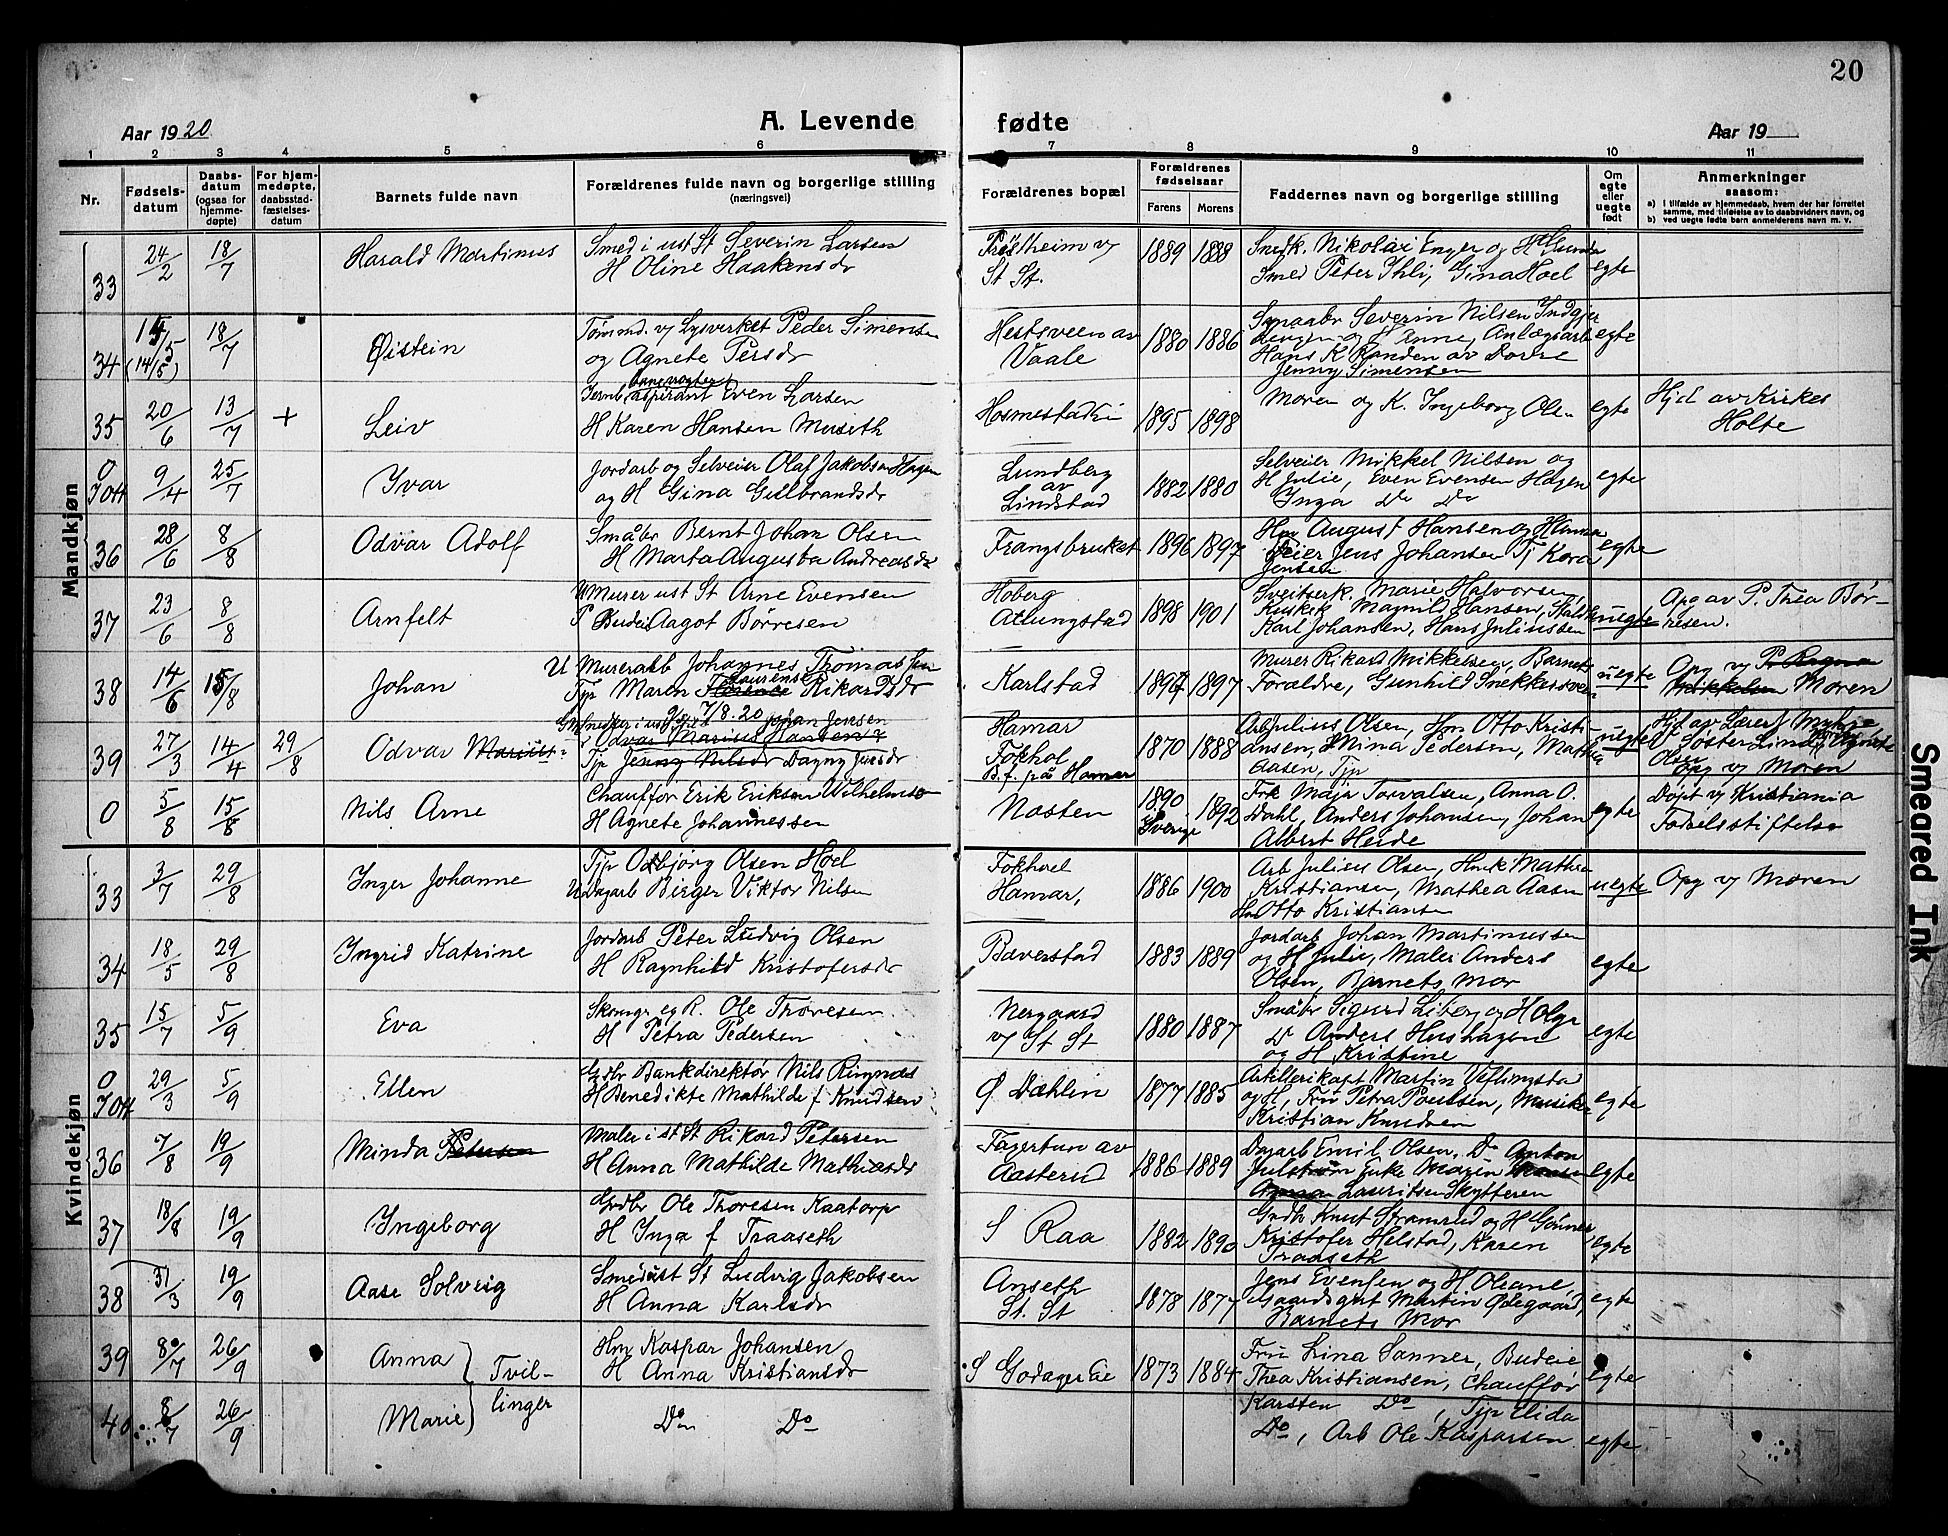 20
Aar 1920
A. Levende
fødte
Aar 19
1 2 3 4 5 6 7 8 9 10 11
Nr.
Fødsels-
datum
Daabs-
datum
(ogsaa for
hjemme-
døpte)
For hjem-
medøpte,
daabsstad-
fæstelses-
datum
Barnets fulde navn
Forældrenes fulde navn og borgerlige stilling
(næringsvei)
Forældrenes bopæl
Forældrenes
fødselsaar
Farens Morens
Faddernes navn og borgerlige stilling
Om
egte
eller
uegte
født
Anmerkninger
saasom:
a) I tilfælde av hjemmedaab, hvem der har forrettet
samme, med tilføielse av to daabsvidners navn, og
b) ved uegte fødte barn anmelderens navn m. v.
Mandkjøn
33 24/2 18/7 Harald Martinus
Smed i ust St Severin Larsen
H Oline Haakensdr
St St. 1889 1888
Snedk. Nikolai Enger og H
Smed Peter Ihli, Gina Hoel
egte
34 15/5 (14/5) 18/7 Øistein
Tømmd. v/ Lysverket Peder Simensen
og Agnete Persdr
Hestsveen av
Vaale 1880 1886
Severin Nilsen
og H Anne, Anlægsarb
Hans K Randen av
Jenny Simensen
egte
35 20/6 13/7 + Leiv
banevogter
Jernb. aspirant Even Larsen
H Karen Hansen Museth
1895 1898
Moren og K. Ingeborg Olsen
egte
Hjd av Kirkes
Holte
0 704 9/4 25/7 Ivar
Jordarb og Selveier Olaf Jakobsen Hagen
og H Gina Gulbrandsdr
Lundberg
av
Lindstad 1882 1880
Selveier Mikkel Nilsen og
H Julie, Even Evensen Hagen
Inga Do Do
egte
36 28/6 8/8 Odvar Adolf
Småbr Bernt Johan Olsen
H Marta Augusta Andreasdr
Frangsbruket 1896 1897
Hm August Hansen og H Anna
Jens Johansen Tj Kora
Jensen
egte
37 23/6 8/8 Arnfelt
U Murer ust St Arne Evensen
P Budeie Aagot Børresen
Hoberg
Atlungstad 1898 1901
Sveitserk. Marie Halvorsen,
Kuskk Magnild Hansen,
Karl Johansen, Hans Juliussen
uegte
Opg av P. Thea Bør-
resen.
38 14/6 15/8 Johan
U Murerarb Johannes Thomassen
Laurense
Tjp Maren Florence Rikardsdr
Karlstad 1897 1897
Murer Rikard Mikkelsen, Barnets
Forældre, Gunhild
uegte
Opg v/ P. Ragna
Mikkelsen Moren
39 27/3 14/4 29/8 Odvar Marius
7/8.20
Johan Jensen
Odvar Marius Hansen
Tjp Jenny Nilsdr Dagny Jensdr
Hamar
Fokhol
B.f. på Hamar 1870 1888
Arb Julius Olsen, Hm Otto Kristi-
ansen, Mina Pedersen, Mathea
Aasen, Tjp
uegte
Hjd av Lærer
Søster
Olsen
Opg v/ Moren
0 5/8 15/8 Nils Arne
Chauffør Erik Eriksen Wilhelmsen
H Agnete Johannessen
Nosten 1890
Sverige 1892
Frk Maja Torvalsen, Anna O.
Dahl, Anders Johansen, Johan
Albert Heide
egte
Døpt v/ Kristiania
Fødselsstiftelse
Kvindekjøn
33 3/7 29/8 Inger Johanne
Tjp Osbjørg Olsen Hoel
U Dagarb Birger Viktor Nilsen
Fokhoel
Hamar, 1886 1900
Arb Julius Olsen, Mathea
Kristiansen, Mathea Aasen
Hm Otto Kristiansen
uegte
Opg v/ Moren
34 18/5 29/8 Ingrid Katrine
Jordarb Peter Ludvig Olsen
H Ragnhild Kristofersdr
Baverstad 1883 1889
Jordarb Johan Martinussen
og H Julie, Maler Anders
Olsen, Barnets Mor
egte
35 15/7 5/9 Eva
Skomgr eg R. Ole Thoresen
H Petra Pedersen
Nergaard
v/ St St 1880 1887
Småbr Sigurd Liberg og H Olga
Do Anders Hushagen
og H Kristine
egte
0 704 29/3 5/9 Ellen
Gdbr Bankdirektør Nils Ringnes
H Benedikte Mathilde f. Knudsen
Ø Dæhlin 1877 1885
Artillerikapt Martin Veflingstad
og H, Fru Petra Poulsen, Musiker
Kristian Knudsen
egte
36 7/8 19/9 Minda Petersen
Maler i st St Rikard Petersen
H Anna Mathilde Mathiasdr
Fagertun av
Aasterud 1886 1889
Dagarb Emil Olsen, Do Anton
Julstrøm Enke Magin
Lauritsen Skytteren
egte
37 18/8 19/9 Ingeborg
Grdbr Ole Thoresen Kaatorp
H Inga f Traaseth
S Raa 1882 1890
Grdbr Knut og H
Kristofer Helstad, Karen
Traaseth
egte
38 31/3 19/9 Aase Solveig
Smed ust St Ludvig Jakobsen
H Anna Karlsdr
Anseth
St. St 1878 1877
Jens Evensen og H Oleane,
Gaardsgut Martin Ødegaard,
Barnets Mor
egte
39 8/7 26/9 Anna
Tvil-
linger
Hm Kaspar Johansen
H Anna Kristiansdr
S Godager Eie 1873 1884
Fru Lina Sanner, Budeie
Thea Kristiansen, Chauffør
egte
40 8/7 26/9 Marie
Do Do
Karsten Do, Tjp Elida
Do, Arb Ole Kaspersen
egte
Smeared Ink